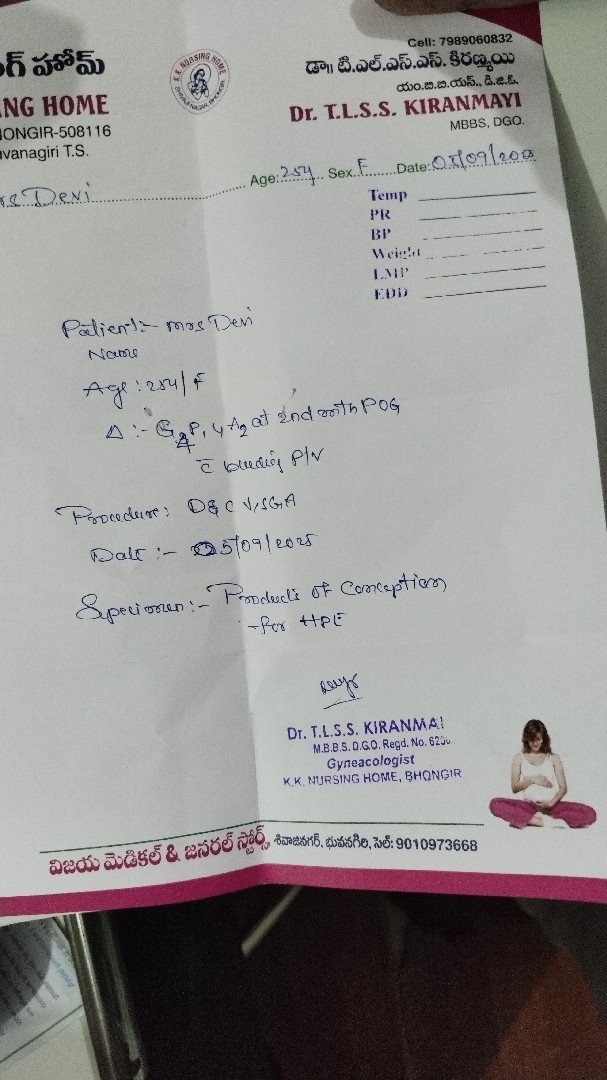 Cell: 7989060832
ంగ్ హోమ్
డా॥ టి.ఎల్.ఎస్.ఎస్. కిరణ్మయి
యం.బి.బి.యస్., డి.జి.ఓ.
K.K. NURSING HOME
NG HOME
Dr. T.L.S.S. KIRANMAYI
MBBS, DGO.
ONGIR-508116
vanagiri T.S.
rs Devi
Age: 25y Sex: F Date: 05/09/202
Temp
PR
BP
Weight
LMP
EDD
Patient :- mrs Devi
Name
Age : 25y/F
Δ :- G4P1 A2 at 2nd month POG
c̄ bleeding P/V
Procedure: D&C
Date :- 05/09/2025
Specimen :- Products of Conception
- for HPE
Dr. T.L.S.S. KIRANMAI
M.B.B.S. D.G.O. Regd. No.
Gyneacologist
K.K. NURSING HOME, BHONGIR
విజయ మెడికల్ & జనరల్ స్టోర్స్ శివాజినగర్, భువనగిరి, సెల్: 9010973668